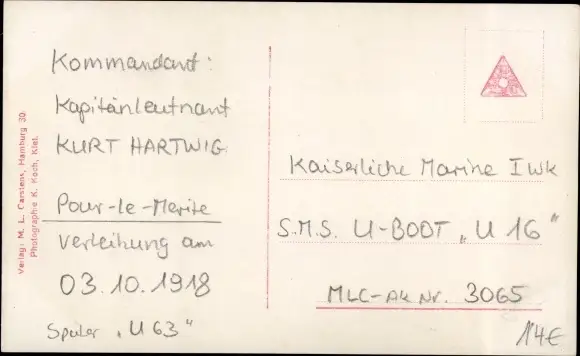 Kommandant:
Kapitänleutnant
KURT HARTWIG
Pour-le-Merite
Verleihung am
03.10.1918
Später „U 63"
Kaiserliche Marine I Wk
S.M.S. U-BOOT „U 16"
MLC-AK Nr. 3065
14€
Verlag: M. L. Carstens, Hamburg 30.
Photographie K. Koch, Kiel.